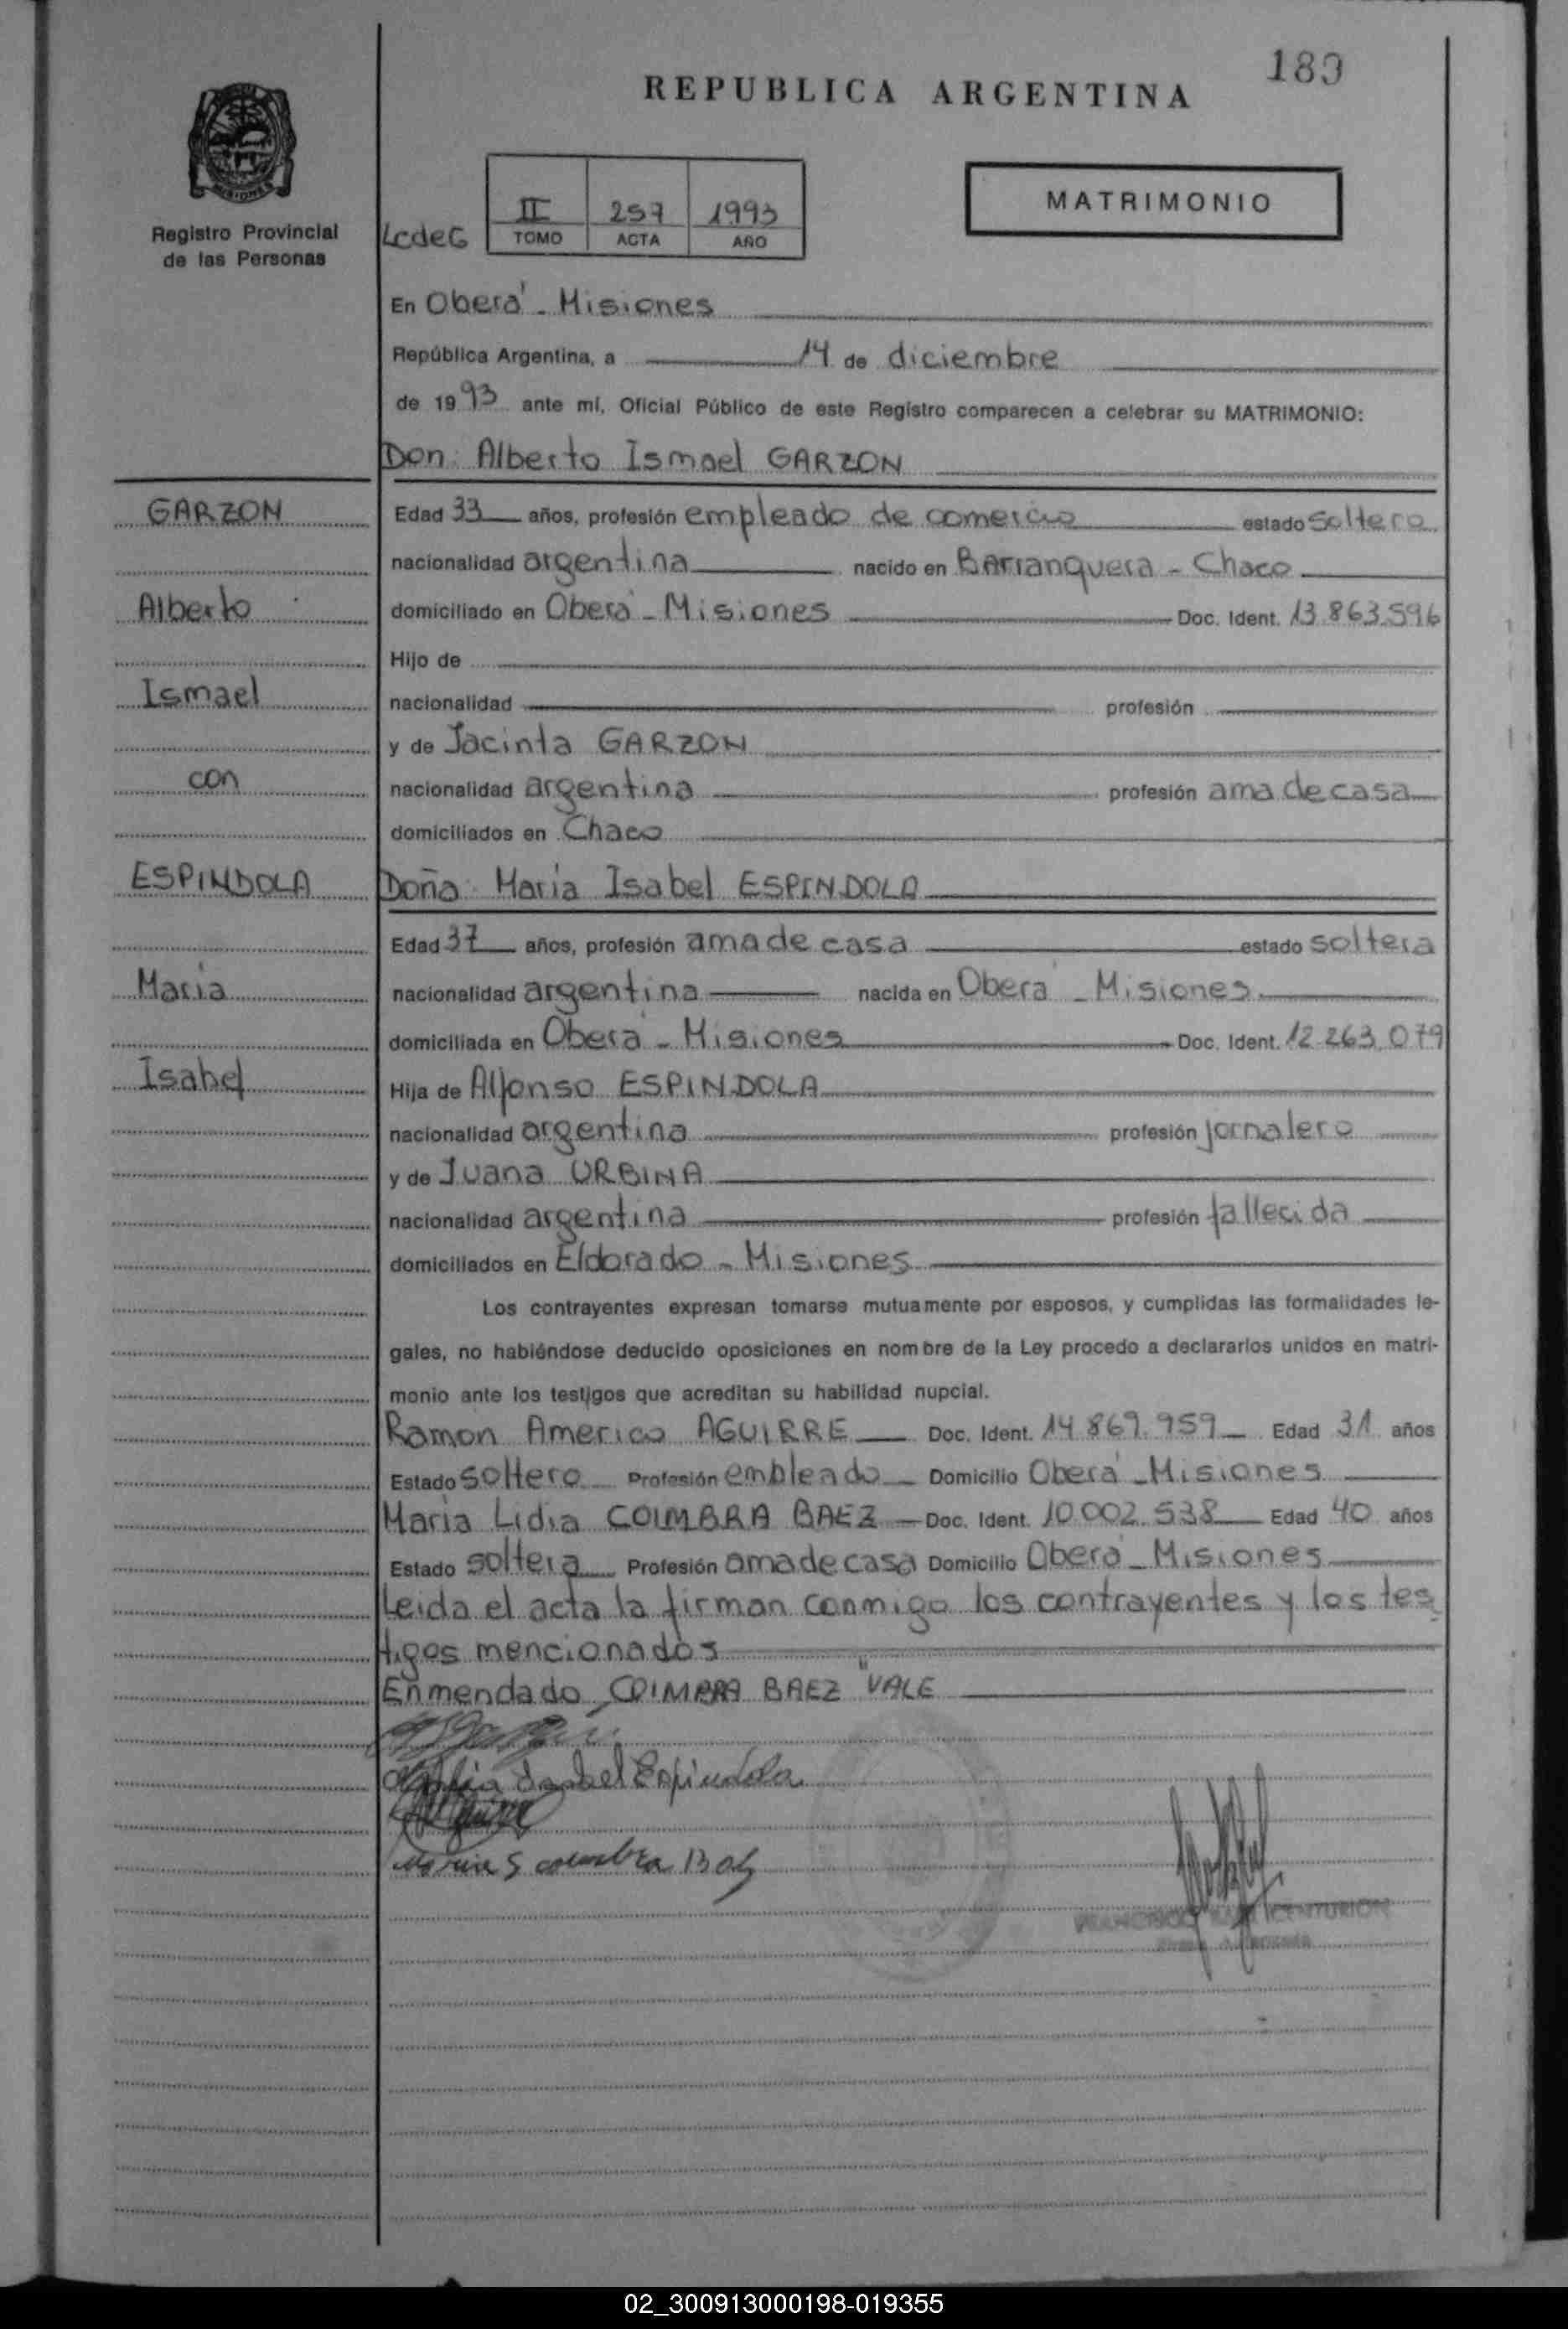 189
REPUBLICA ARGENTINA
MISIONES
Registro Provincial
de las Personas
LcdeG
II 257 1993
TOMO ACTA AÑO
MATRIMONIO
En Oberá - Misiones
República Argentina, a 14 de diciembre
de 19 93 ante mí, Oficial Público de este Registro comparecen a celebrar su MATRIMONIO:
Don: Alberto Ismael GARZON
GARZON
Edad 33 años, profesión empleado de comercio estado soltero
nacionalidad argentina nacido en BArranquera - Chaco
Alberto
domiciliado en Oberá - Misiones Doc. Ident. 13.863.596
Hijo de
Ismael
nacionalidad profesión
y de Jacinta GARZON
con
nacionalidad argentina profesión ama de casa
domiciliados en Chaco
ESPINDOLA
Doña: Maria Isabel ESPINDOLA
Edad 37 años, profesión ama de casa estado soltera
Maria
nacionalidad argentina nacida en Oberá - Misiones
domiciliada en Oberá - Misiones Doc. Ident. 12.263.079
Isabel
Hija de Alfonso ESPINDOLA
nacionalidad argentina profesión jornalero
y de Juana URBINA
nacionalidad argentina profesión fallecida
domiciliados en Eldorado - Misiones
Los contrayentes expresan tomarse mutuamente por esposos, y cumplidas las formalidades le-
gales, no habiéndose deducido oposiciones en nombre de la Ley procedo a declararlos unidos en matri-
monio ante los testigos que acreditan su habilidad nupcial.
Ramon Americo AGUIRRE Doc. Ident. 14.869.959 Edad 31 años
Estado soltero Profesión empleado Domicilio Oberá - Misiones
Maria Lidia COIMBRA BAEZ Doc. Ident. 10.002.538 Edad 40 años
Estado soltera Profesión ama de casa Domicilio Oberá - Misiones
Leida el acta la firman conmigo los contrayentes y los tes
tigos mencionados
Enmendado "COIMBRA BAEZ" VALE
Isabel Espindola
FRANCISCO CENTURION
02_300913000198-019355